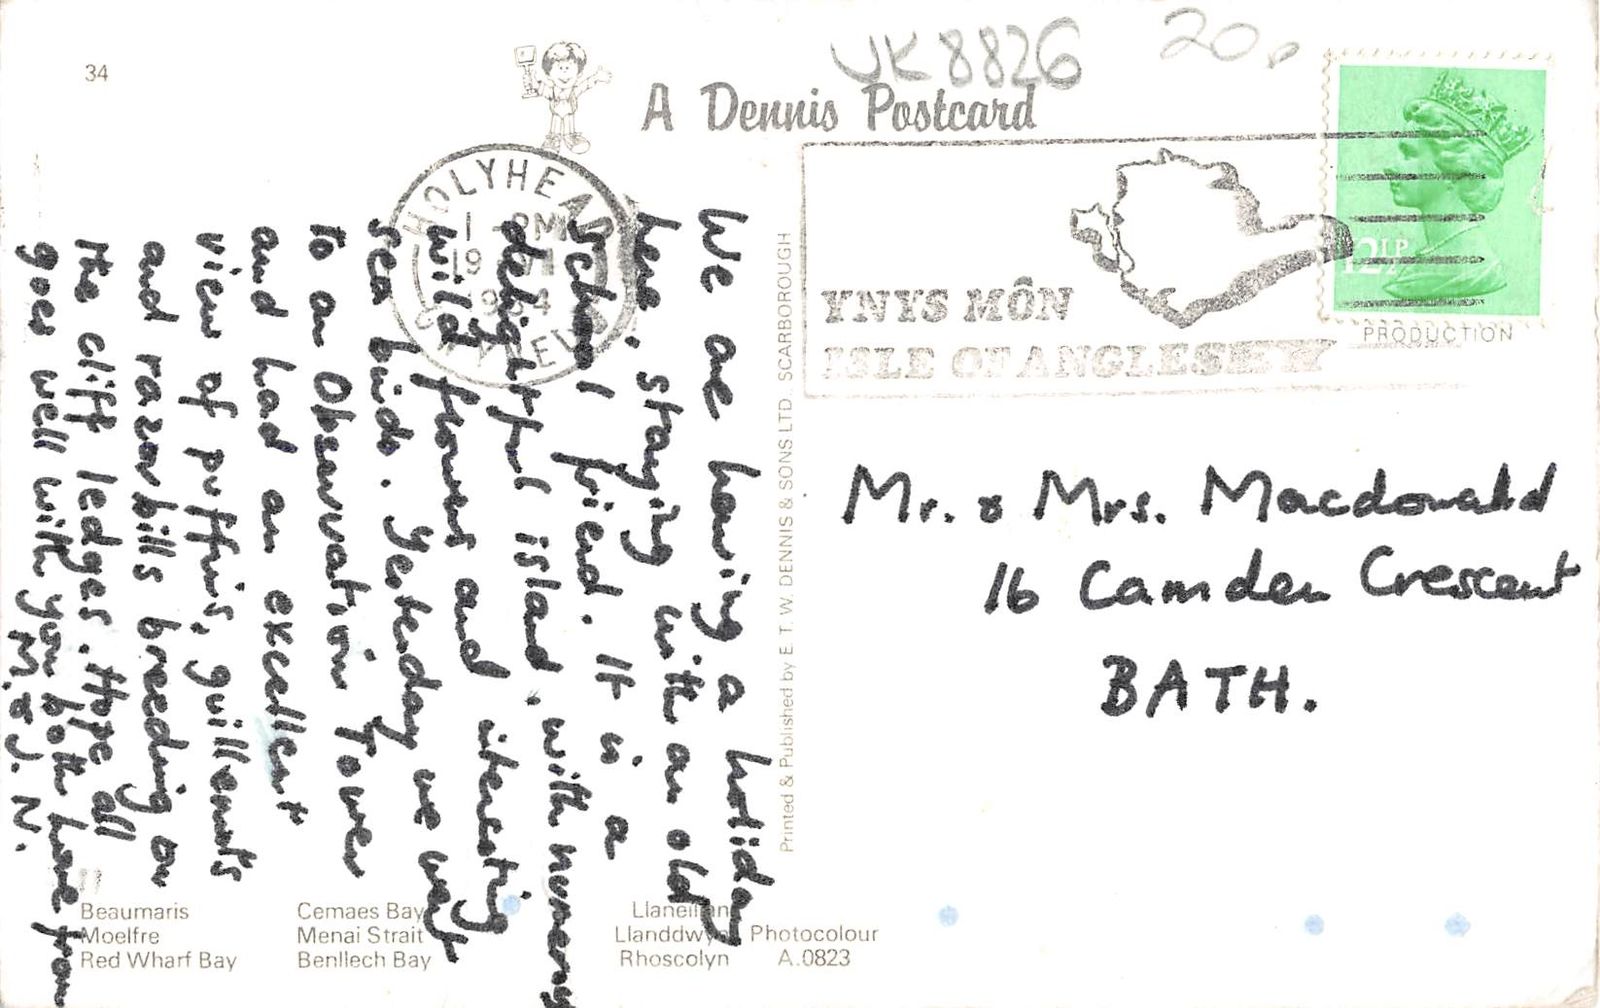 34
UK 8826
20p
A Dennis Postcard
HOLYHEAD
1 - PM
19
1984
GWYNEDD
YNYS MÔN
ISLE OF ANGLESEY
12½P
PRODUCTION
We are having a holiday
here, staying with an old
school friend. It is a
delightful island, with numerous
wild flowers and interesting
sea birds. Yesterday we went
to an Observation Tower
and had an excellent
view of puffins, guillemots
and razorbills breeding on
the cliff ledges. Hope all
goes well with you both. Love from
M. & J. N.
Printed & Published by E. T. W. DENNIS & SONS LTD., SCARBOROUGH
Mr. & Mrs. Macdonald
16 Camden Crescent
BATH.
Beaumaris
Moelfre
Red Wharf Bay
Cemaes Bay
Menai Strait
Benllech Bay
Llaneilian
Llanddwyn
Rhoscolyn
Photocolour
A.0823